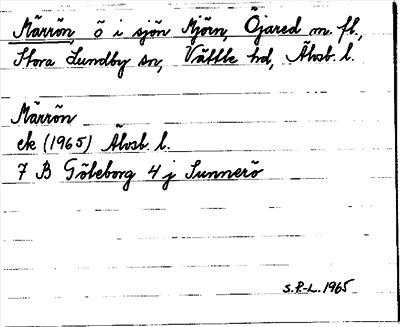 Märrön, ö i sjön Mjörn, Öjared m. fl.,
Stora Lundby sn, Vättle hd, Älvsb. l.
Märrön
ek (1965) Älvsb. l.
7 B Göteborg 4 j Sunnerö
S.P.-L. 1965